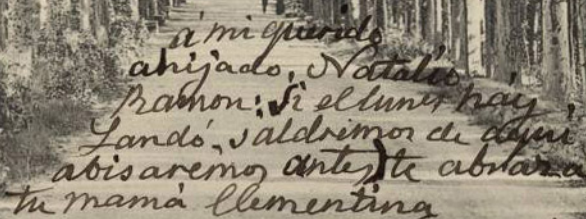 á mi querido
ahijado, Natalio
Ramon: Si el lunes háy
Landó, saldremos de aquí
abisaremos antes, te abraza
tu mamá Clementina